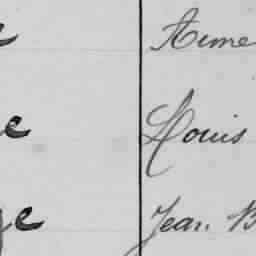 e Aime
e Louis
ge Jean B